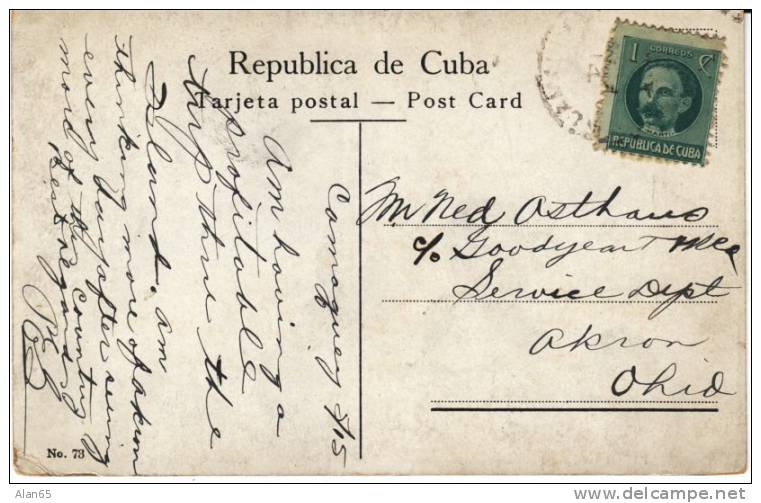 Republica de Cuba
Tarjeta postal — Post Card
1 CORREOS ¢
REPUBLICA DE CUBA
Camaguey 4/15
Am having a
profitable
trip thru the
Island. Am
thinking more of Akron
every day after seeing
most of this country
Best regards
Mr Ned Osthaus
c/o Goodyear
Service Dept
Akron
Ohio
No. 73
Alan65
http://www.delcampe.net